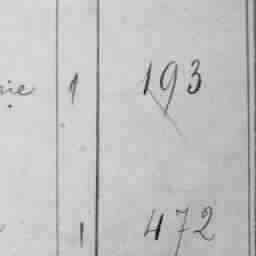 1 193
1 472